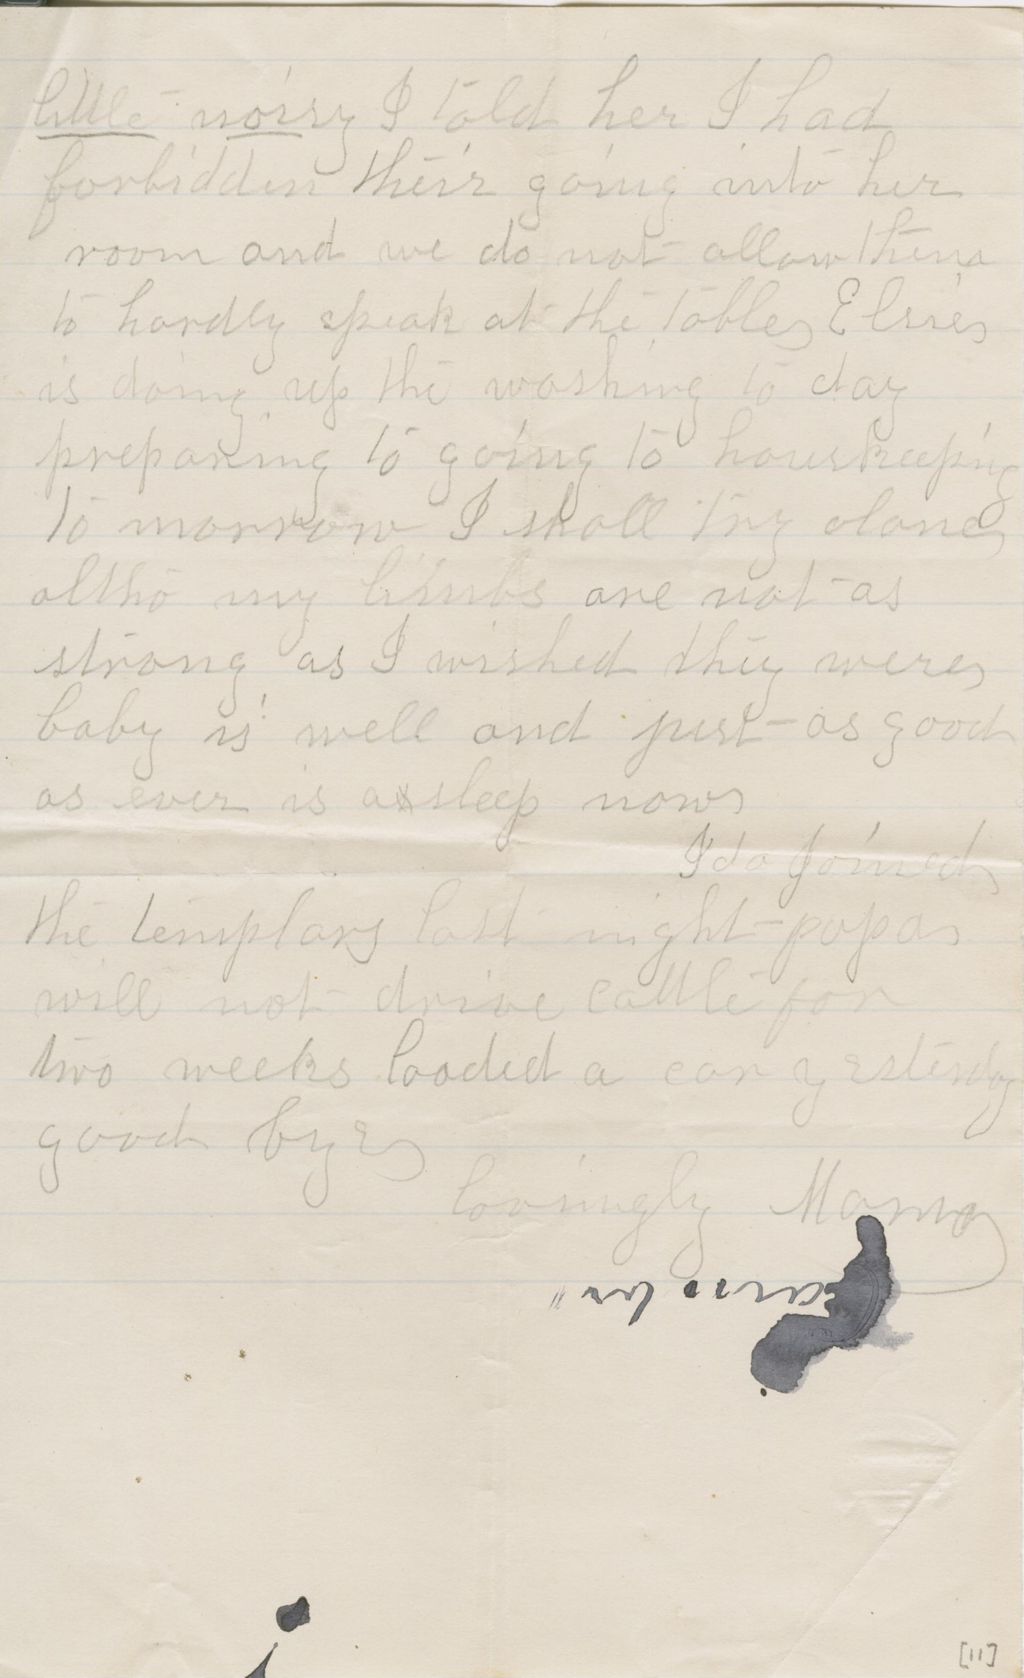 little noisy I told her I had
forbidden their going into her
room and we do not allow them
to hardly speak at the table, Elsie,
is doing up the washing to day
preparing to going to houskeeping
to morrow I shall try alone,
altho my limbs are not as
strong as I wished they were,
baby is well and just as good
as ever is asleep now,
Ida Joined,
the templars last night papa,
will not drive cattle for
two weeks loaded a car yesterday
good bye,
lovingly Mama,
[11]